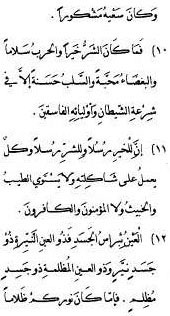 وَكَانَ سَعْيُهُ مَشْكُوراً .
(١٠) فَمَا كَانَ الشَّرُّ خَيْراً وَالحرب سَلاماً
والبغضَاءُ مَحَبَّة وَالسَّلب حَسَنة إلاَّ في
شِرعَة الشيطان وَأوليائِهِ الفاسقينَ .
(١١) إنَّ للخيرِ رسُلاً وللشرِّ رسُلاً وكلٌّ
يعملُ على شاكلتِهِ وَلا يَستوي الطيب
والخبيث ولا المؤمنونَ والكافرونَ .
(١٢) العينُ نِبراسُ الجَسَدِ فَذو العَينِ النَّيِّرةِ ذُو
جَسَدٍ نَيِّرٍ وَذو العين المظلمةِ ذو جَسَدٍ
مظلمٍ . فإمّا كانَ نوركم ظلاماً